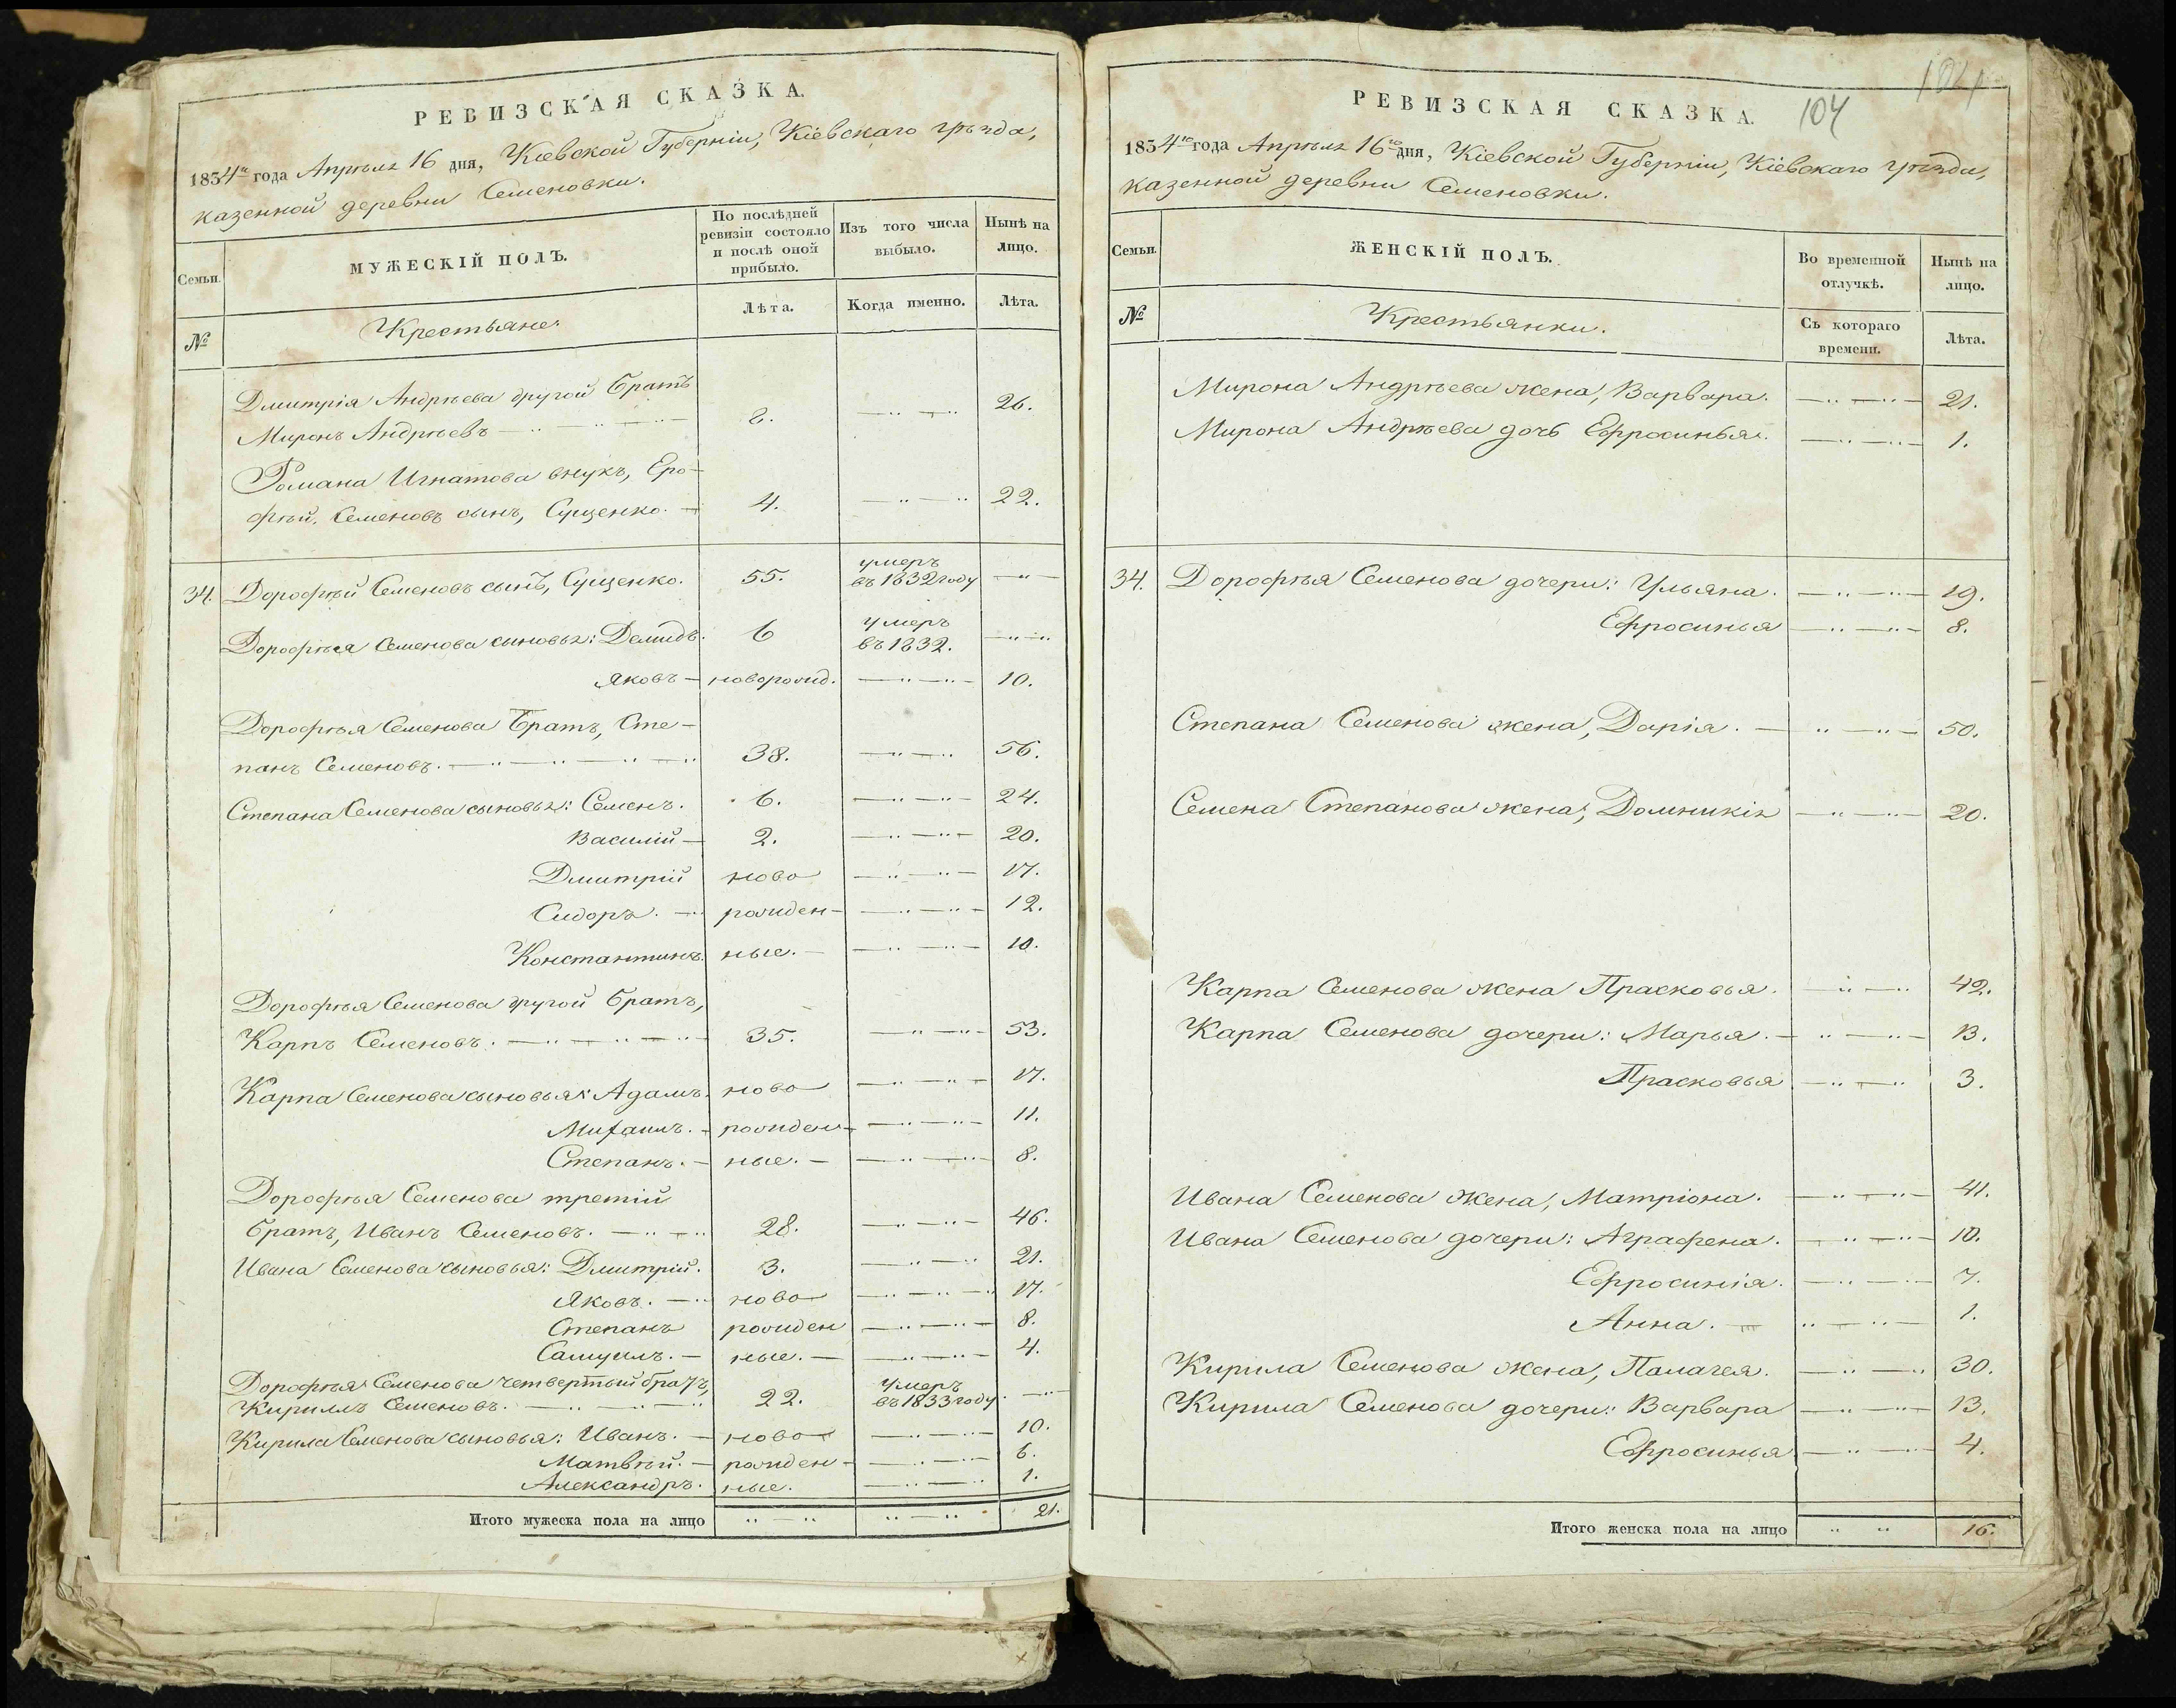 РЕВИЗСКАЯ СКАЗКА.
1834го года Апрѣля 16 дня, Кіевской Губерніи, Кіевскаго уѣзда,
казенной деревни Семеновки.
Семьи. МУЖЕСКІЙ ПОЛЪ. По послѣдней ревизіи состояло и послѣ оной прибыло. Изъ того числа выбыло. Нынѣ на лицо.
№ Крестьяне. Лѣта. Когда именно. Лѣта.
Дмитрія Андрѣева другой братъ
Миронъ Андрѣевъ 8. 26.
Романа Игнатова внукъ, Еро-
фѣй, Семеновъ сынъ, Сущенко. 4. 22.
34. Дорофѣй Семеновъ сынъ, Сущенко. 55. умеръ въ 1832 году
Дорофѣея Семенова сыновья: Демидъ. 6 умеръ въ 1832.
Яковъ новорожд. 10.
Дорофѣя Семенова братъ, Сте-
панъ Семеновъ. 38. 56.
Степана Семенова сыновья: Семенъ. 6. 24.
Василій 2. 20.
Дмитрій ново 17.
Сидоръ. рожден- 12.
Константинъ. ные. 10.
Дорофѣя Семенова другой братъ,
Карпъ Семеновъ. 35. 53.
Карпа Семенова сыновья: Адамъ. ново 17.
Михаилъ. рожден- 11.
Степанъ. ные. 8.
Дорофѣя Семенова третій
братъ, Иванъ Семеновъ. 28. 46.
Ивана Семенова сыновья: Дмитрій. 3. 21.
Яковъ. ново 17.
Степанъ рожден 8.
Самуилъ. ные. 4.
Дорофѣя Семенова четвертый братъ,
Кириллъ Семеновъ. 22. умеръ въ 1833 году.
Кирила Семенова сыновья: Иванъ. ново 10.
Матвѣй. рожден- 6.
Александръ. ные. 1.
Итого мужеска пола на лицо 21.
104
104
РЕВИЗСКАЯ СКАЗКА.
1834го года Апрѣля 16го дня, Кіевской Губерніи, Кіевскаго уѣзда,
казенной деревни Семеновки.
Семьи. ЖЕНСКІЙ ПОЛЪ. Во временной отлучкѣ. Нынѣ на лицо.
№ Крестьянки. Съ котораго времени. Лѣта.
Мирона Андрѣева жена, Варвара. 21.
Мирона Андрѣева дочь Ефросинья. 1.
34. Дорофѣя Семенова дочери: Ульяна. 19.
Ефросинья 8.
Степана Семенова жена, Дарія. 50.
Семена Степанова жена, Домникія 20.
Карпа Семенова жена Прасковья. 42.
Карпа Семенова дочери: Марья. 13.
Прасковья 3.
Ивана Семенова жена, Матріона. 41.
Ивана Семенова дочери: Аграфена. 10.
Ефросинія. 7.
Анна. 1.
Кирила Семенова жена, Палагея. 30.
Кирила Семенова дочери: Варвара 13.
Ефросинья 4.
Итого женска пола на лицо 16.